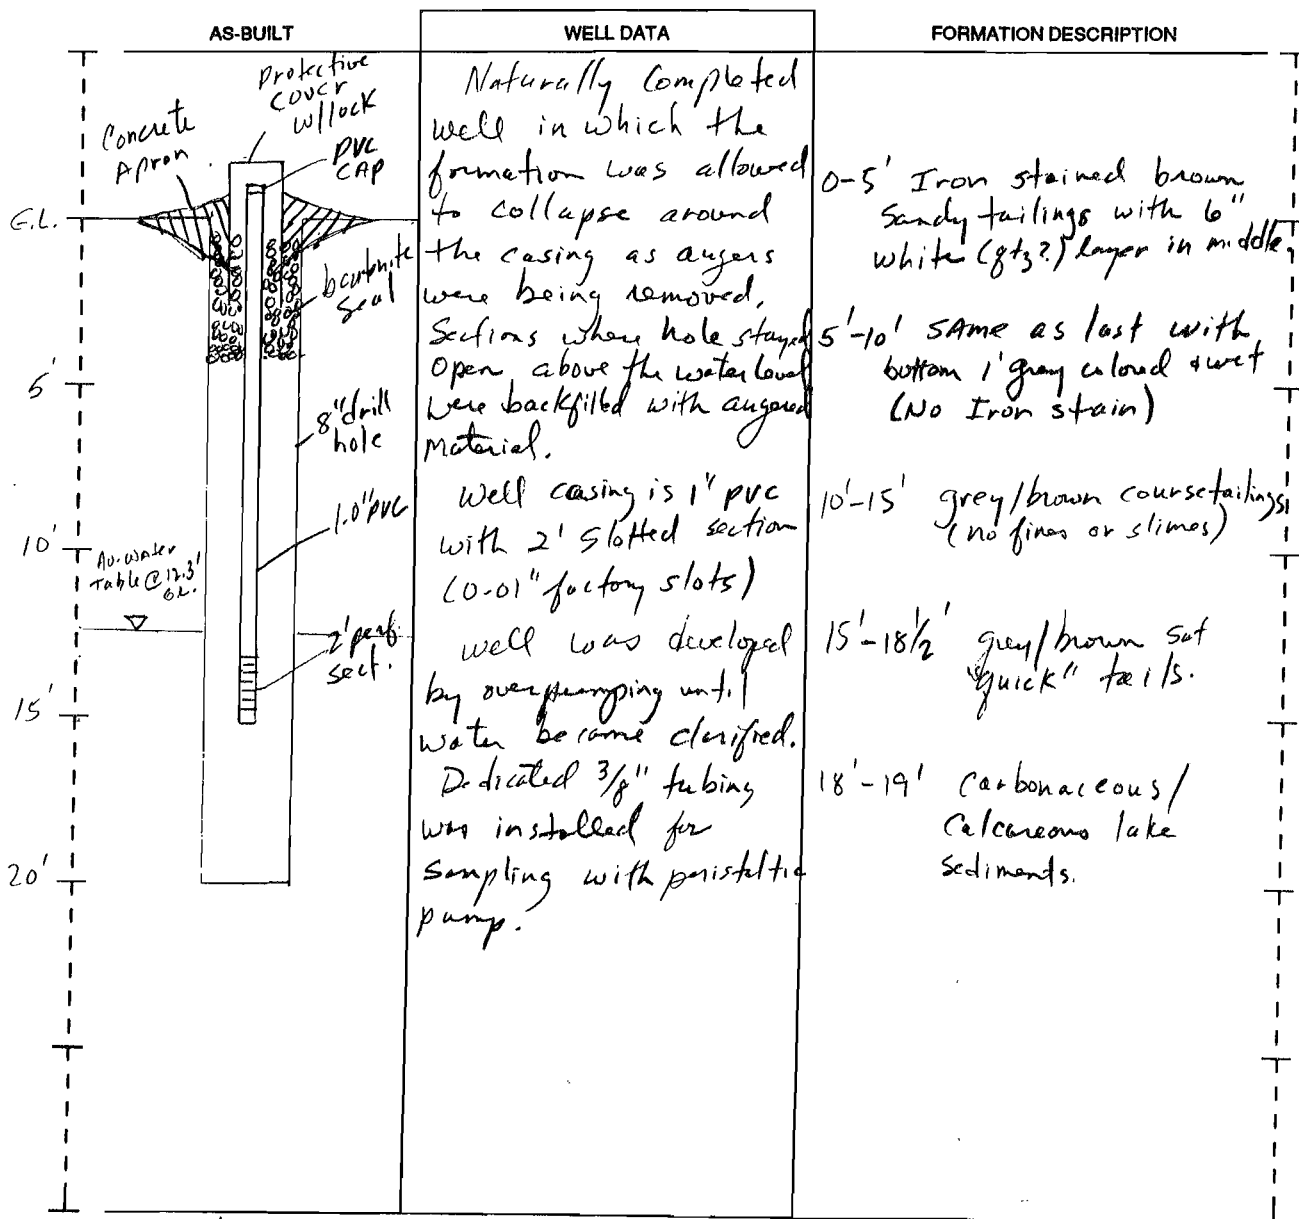 AS-BUILT
WELL DATA
FORMATION DESCRIPTION
Protective
cover
w/lock
Concrete
Apron
PVC
CAP
G.L.
bentonite
seal
5'
8" drill
hole
1.0" PVC
10'
Av. water
Table @ 12.3'
GL.
2' perf.
sect.
15'
20'
Naturally Completed
well in which the
formation was allowed
to collapse around
the casing as augers
were being removed.
Sections where hole stayed
Open above the water level
were backfilled with augered
Material.
Well casing is 1" PVC
with 2' Slotted section
(0.01" factory slots)
Well was developed
by overpumping until
water became clarified.
Dedicated 3/8" tubing
was installed for
Sampling with peristaltic
pump.
0-5' Iron stained brown
Sandy tailings with 6"
white (qtz?) layer in middle
5'-10' SAME as last with
bottom 1' gray colored & wet
(No Iron stain)
10'-15' grey/brown course tailings
(no fines or slimes)
15'-18 1/2' grey/brown sat
"quick" tails.
18'-19' Carbonaceous/
Calcareous lake
sediments.